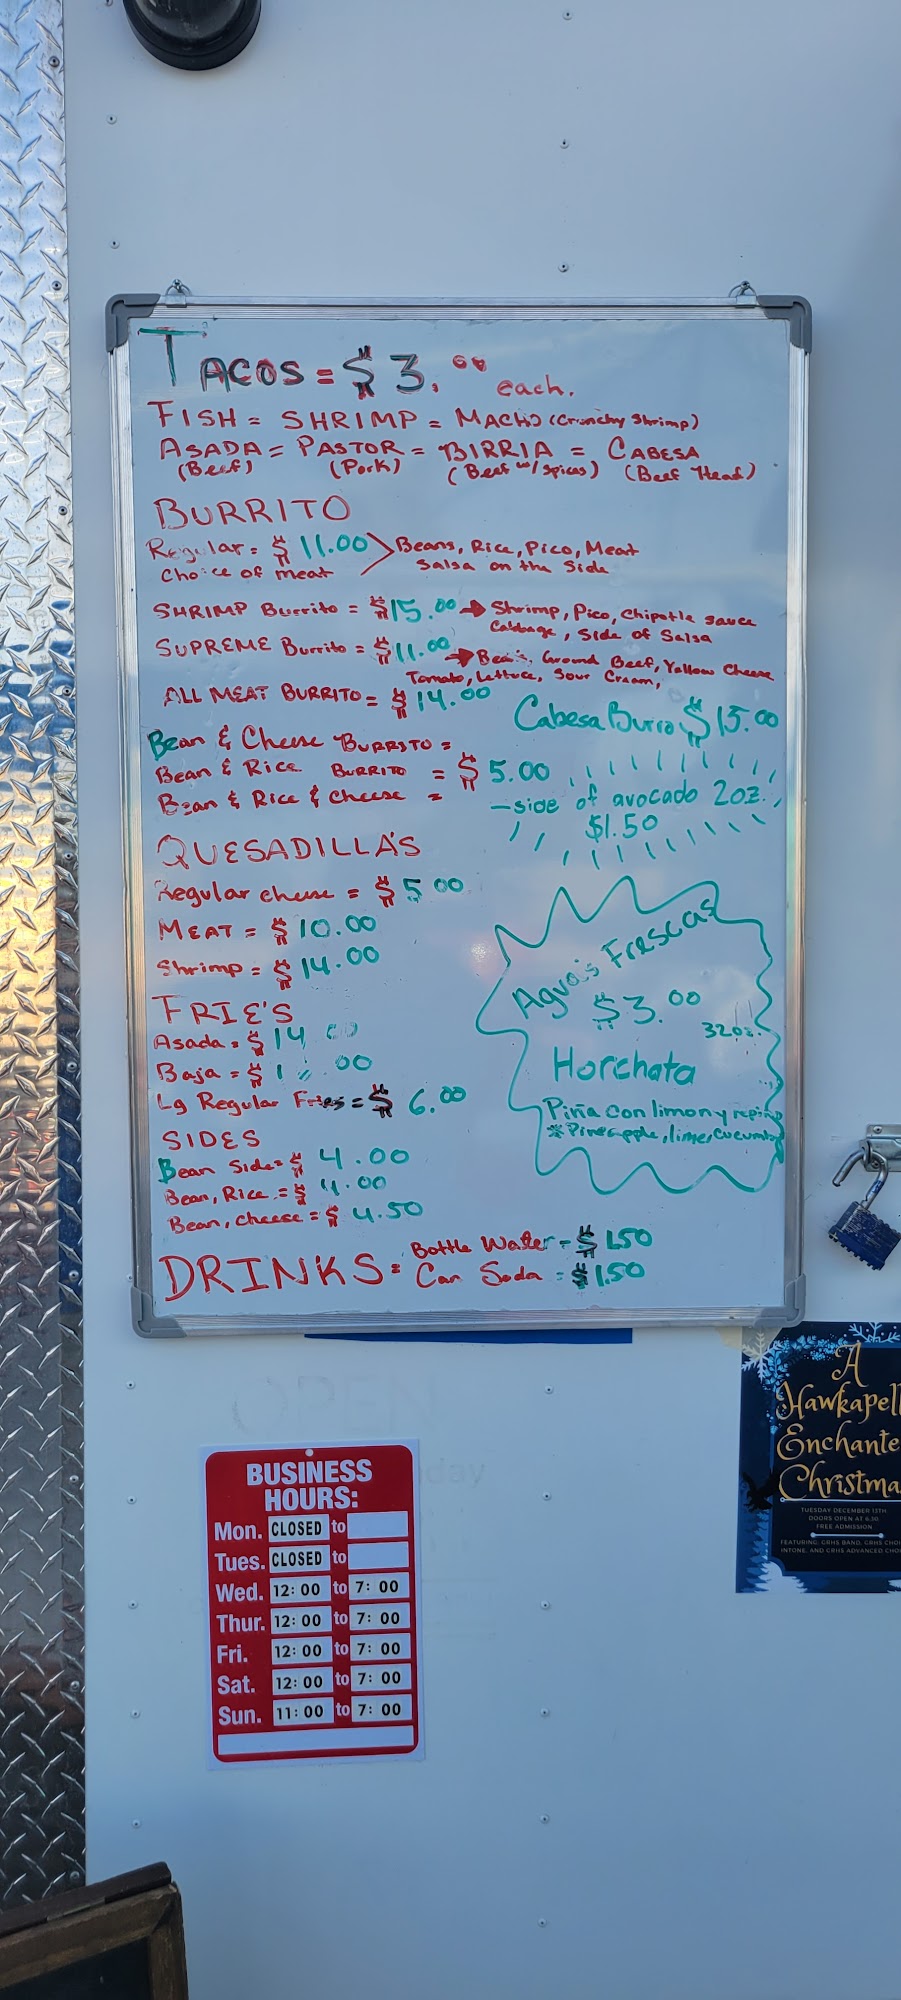 TACOS = $3.00 each.
FISH = SHRIMP = MACHO (Crunchy Shrimp)
ASADA = PASTOR = BIRRIA = CABESA
(Beef) (Pork) (Beef w/ Spices) (Beef Head)
BURRITO
Regular = $11.00 > Beans, Rice, Pico, Meat
Choice of meat Salsa on the Side
SHRIMP Burrito = $15.00 → Shrimp, Pico, Chipotle sauce
Cabbage, Side of Salsa
SUPREME Burrito = $11.00 → Ground Beef, Yallow Cheese
Tomato, Lettuce, Sour Cream,
ALL MEAT BURRITO = $14.00
Cabesa Burro $15.00
Bean & Cheese BURRITO =
Bean & Rice BURRITO = $5.00
Bean & Rice & Cheese =
-side of avocado 2oz.
$1.50
QUESADILLA'S
Regular cheese = $5.00
MEAT = $10.00
Shrimp = $14.00
Agua's Frescas
$3.00
32oz.
Horchata
Piña con limon y
*Pineapple, lime, cucumber
FRIE'S
Asada = $14.00
Baja = $
Lg Regular Fries = $6.00
SIDES
Bean Side = $4.00
Bean, Rice = $4.00
Bean, cheese = $4.50
DRINKS = Bottle Water = $1.50
Can Soda = $1.50
OPEN
A
Hawkapell
Enchante
Christma
TUESDAY DECEMBER 13TH
DOORS OPEN AT 6:30
FREE ADMISSION
FEATURING: GRHS BAND, GRHS CHOI
INTONE, AND GRHS ADVANCED CHO
BUSINESS
HOURS:
Mon. CLOSED to
Tues. CLOSED to
Wed. 12:00 to 7:00
Thur. 12:00 to 7:00
Fri. 12:00 to 7:00
Sat. 12:00 to 7:00
Sun. 11:00 to 7:00